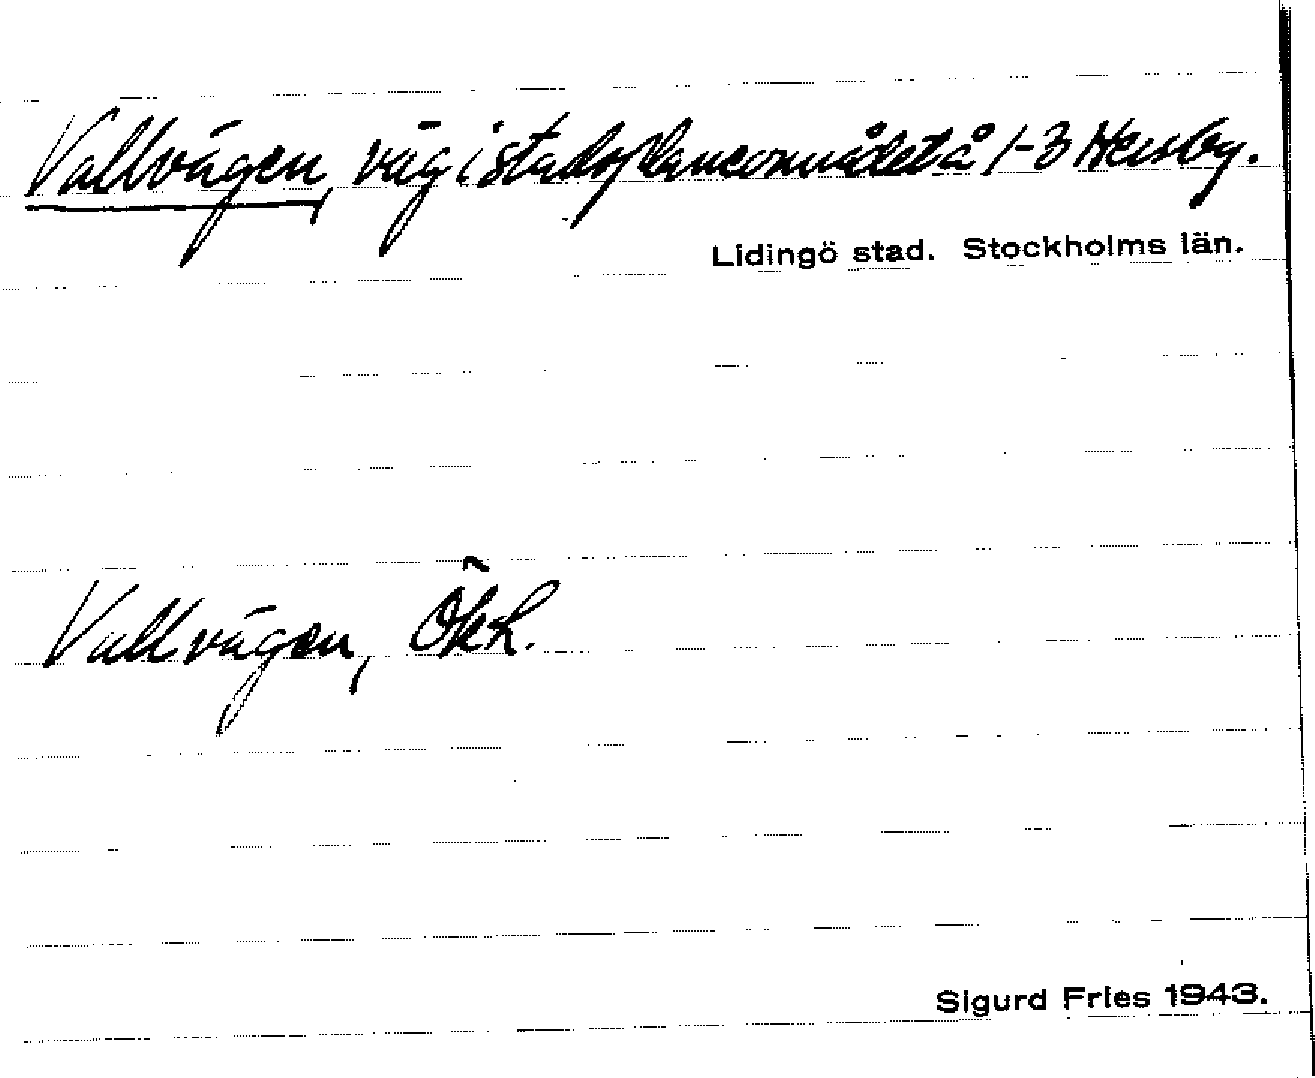 Vallvägen, väg i stadsplaneområdet å 1-3 Hersby.
Lidingö stad. Stockholms län.
Vallvägen, Ökk.
Sigurd Fries 1943.